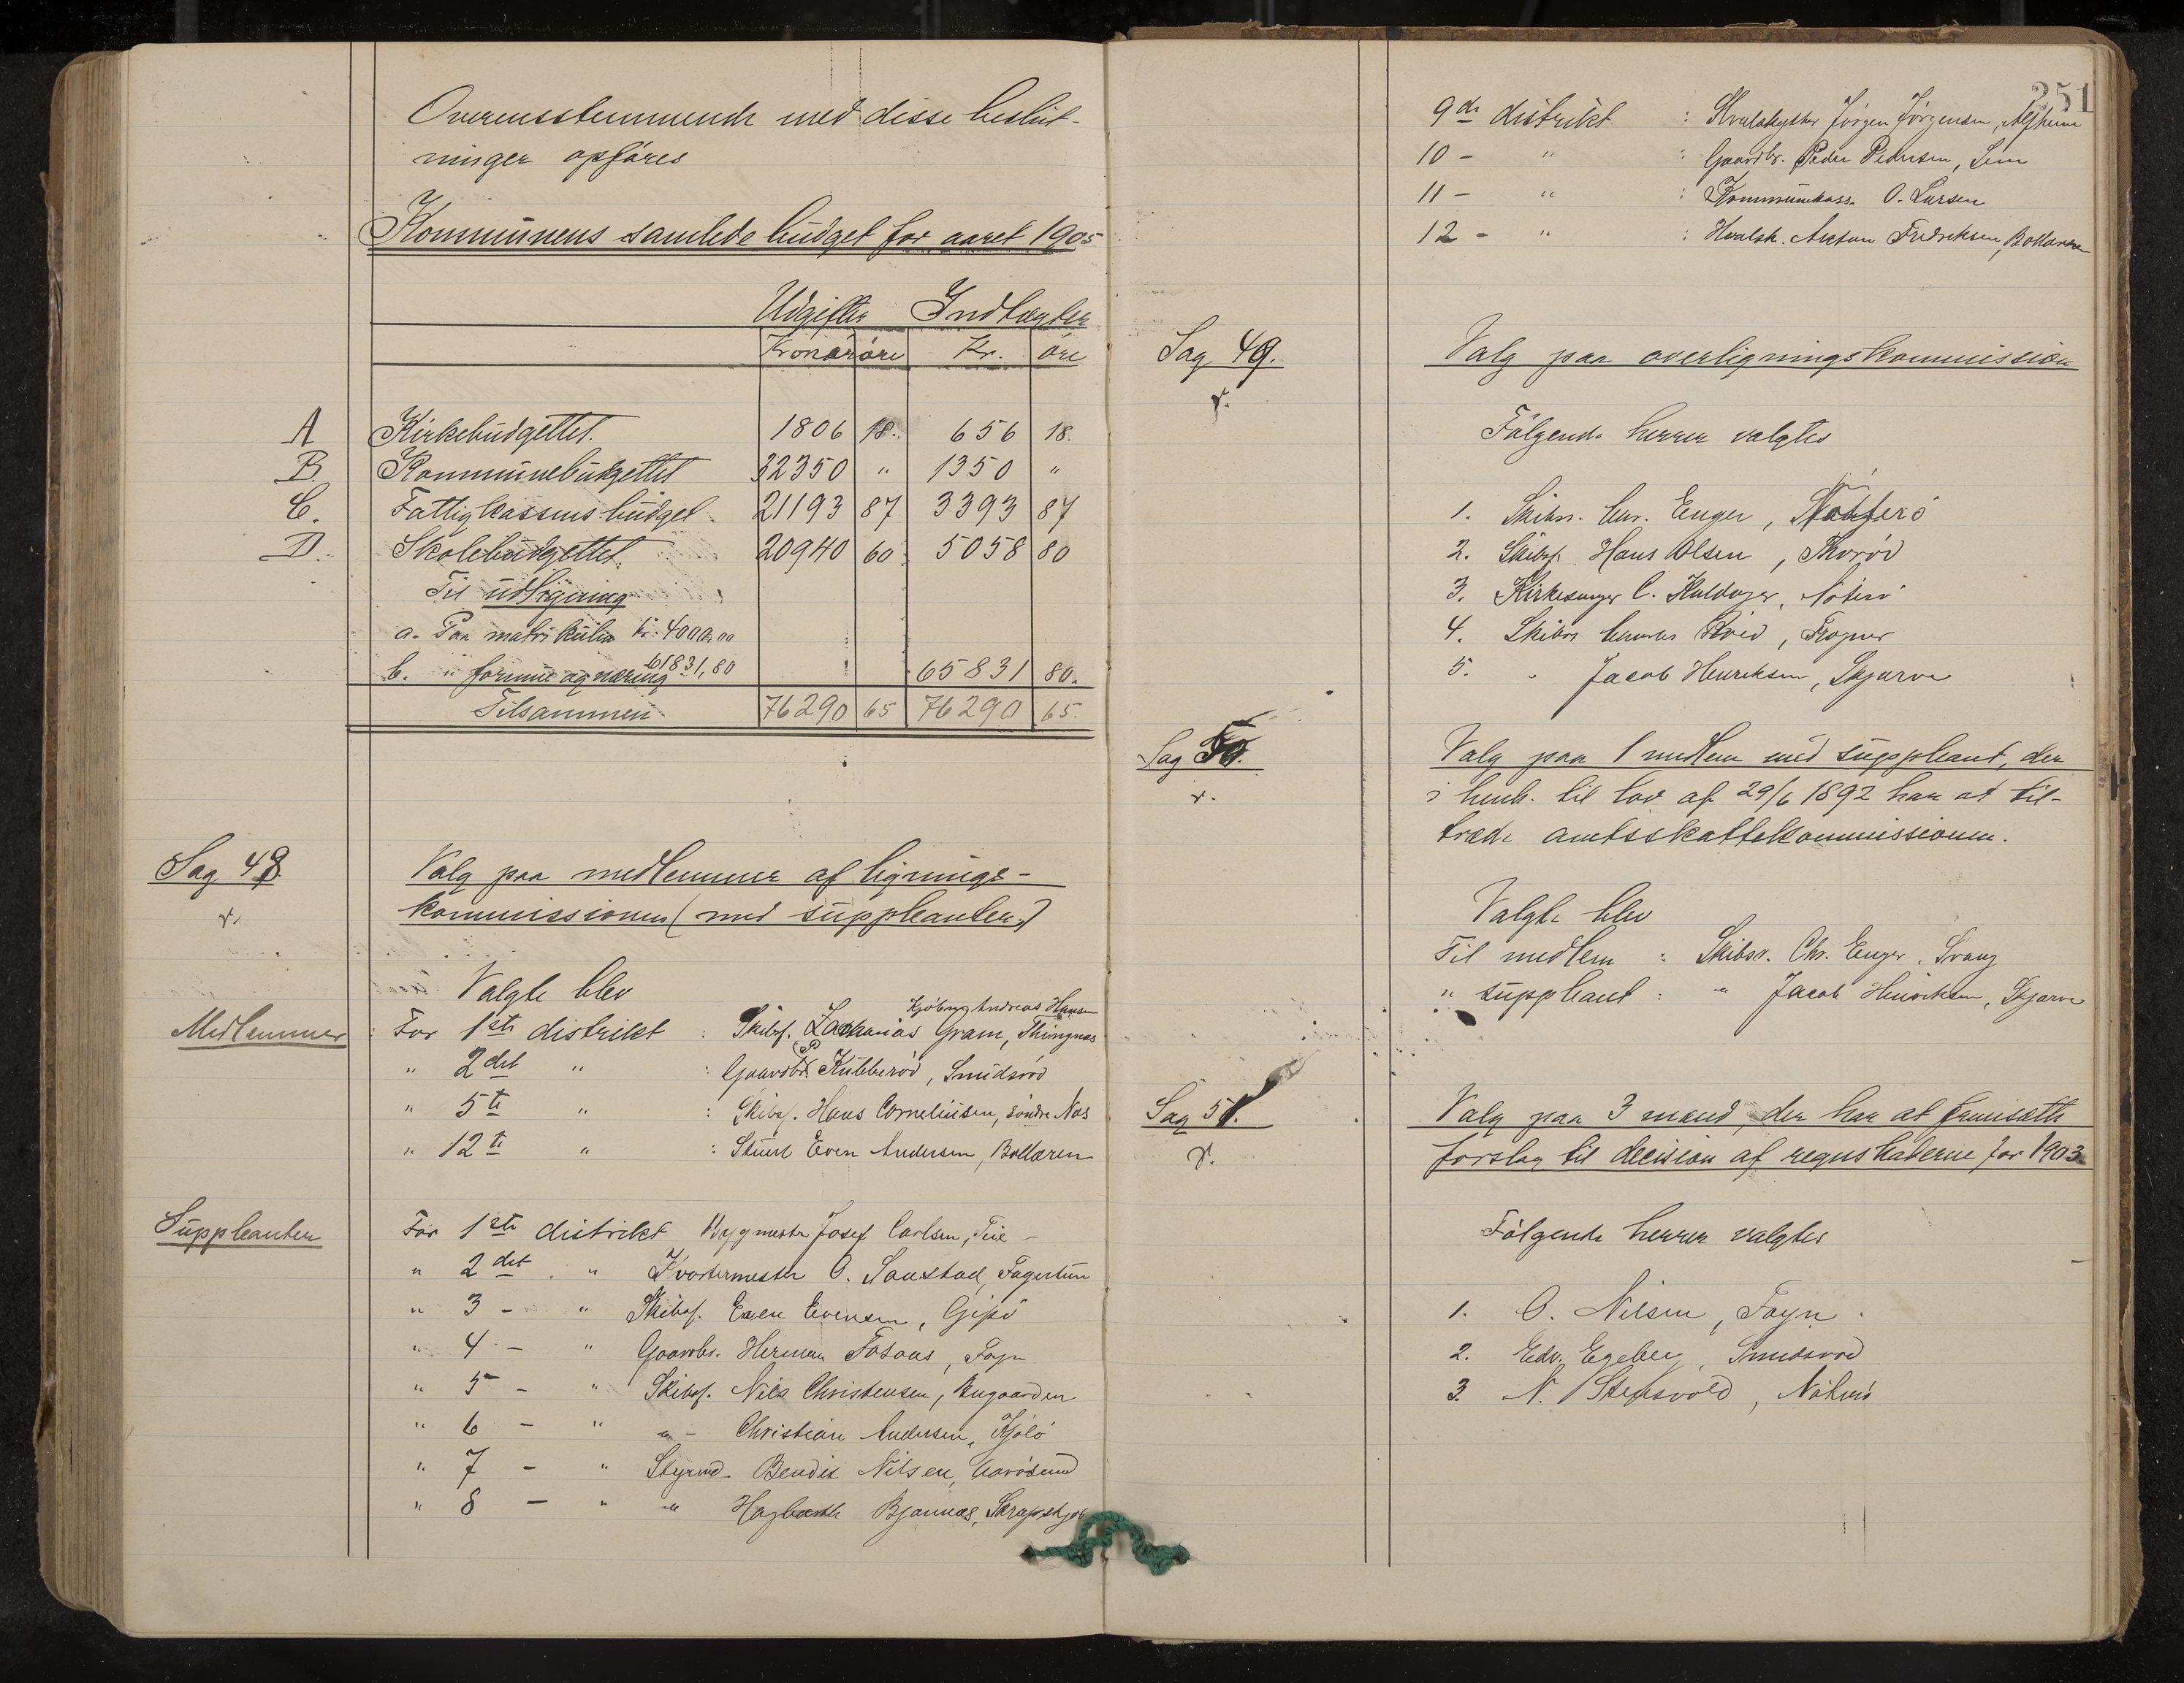 Overensstemmende med disse beslut-
ninger opföres
Kommunens samlede budget for aaret 1905
Udgifter Indtægter
Kroner öre Kr. öre
A Kirkebudgettet. 1806 18. 656 18.
B. Kommunebudgettet 32350 " 1350 "
C. Fattigkassens budget 21193 87 3393 87
D. Skolebudgettet. 20940 60 5058 80
Til udligning
a. Paa matrikulen kr. 4000,00
b. " formue og næring 61831,80 65831 80.
Tilsammen 76290 65 76290 65.
Sag 48.
Valg paa medlemmer af lignings-
kommissionen (med suppleanter.)
Valgte blev
Kjöbm. Andreas Hansen
Medlemmer For 1ste distrikt : Skibsf. Zacharias Gram, Thingnæs
" 2det " : Gaardbr. P Kubberöd, Smidsröd
" 5te " : Skibsf. Hans Corneliusen, söndre Nes
" 12te " : Stuert Even Andersen, Bollæren
Suppleanter For 1ste distrikt Bygmester Josef Carlsen, Teie -
" 2det " Kvartermester O. Saustad, Fagertun
" 3 - " Skibsf. Even Evensen, Gipö
" 4 - " Gaardbr. Herman Fosaas, Föyn
" 5 - " Skibsf. Nils Christensen, Bugaarden
" 6 - " " - Christian Andersen, Kjölö
" 7 - " Styrmd. Bendix Nilsen, Aarösund
" 8 - " " Hagbarth Bjønnæs, Skrapeskjær
251
9de distrikt : Hvalskytter Jörgen Jörgensen,
10 - " : Gaardbr. Peder Pedersen, Sem
11 - " : Kommunekass. O. Larsen
12 - " : Hvalsk. Anton Fredriksen, Bollæren
Sag 49.
Valg paa overligningskommission
Fölgende herrer valgtes
1. Skibsr. Chr. Enger, Nötterö
2. Skibsf. Hans Olsen, Thoröd
3. Kirkesanger C. Nöterö
4. Skibsr. Qvist, Frogner
5. " Jacob Henriksen, Skjærve
Sag 50.
Valg paa 1 medlem med suppleant, der
i henh. til lov af 29/6 1892 har at til-
træde amtsskattekommissionen.
Valgte blev
Til medlem : Skibsr. Chr. Enger, Svang
" suppleant : " Jacob Henriksen, Skjærve
Sag 51.
Valg paa 3 mænd, der har at fremsætte
forslag til decision af regnskaberne for 1903
Fölgende herrer valgtes
1. O. Nilsen, Föyn
2. Edv. Egeberg, Smidsröd
3. N. Stensvold, Nöterö